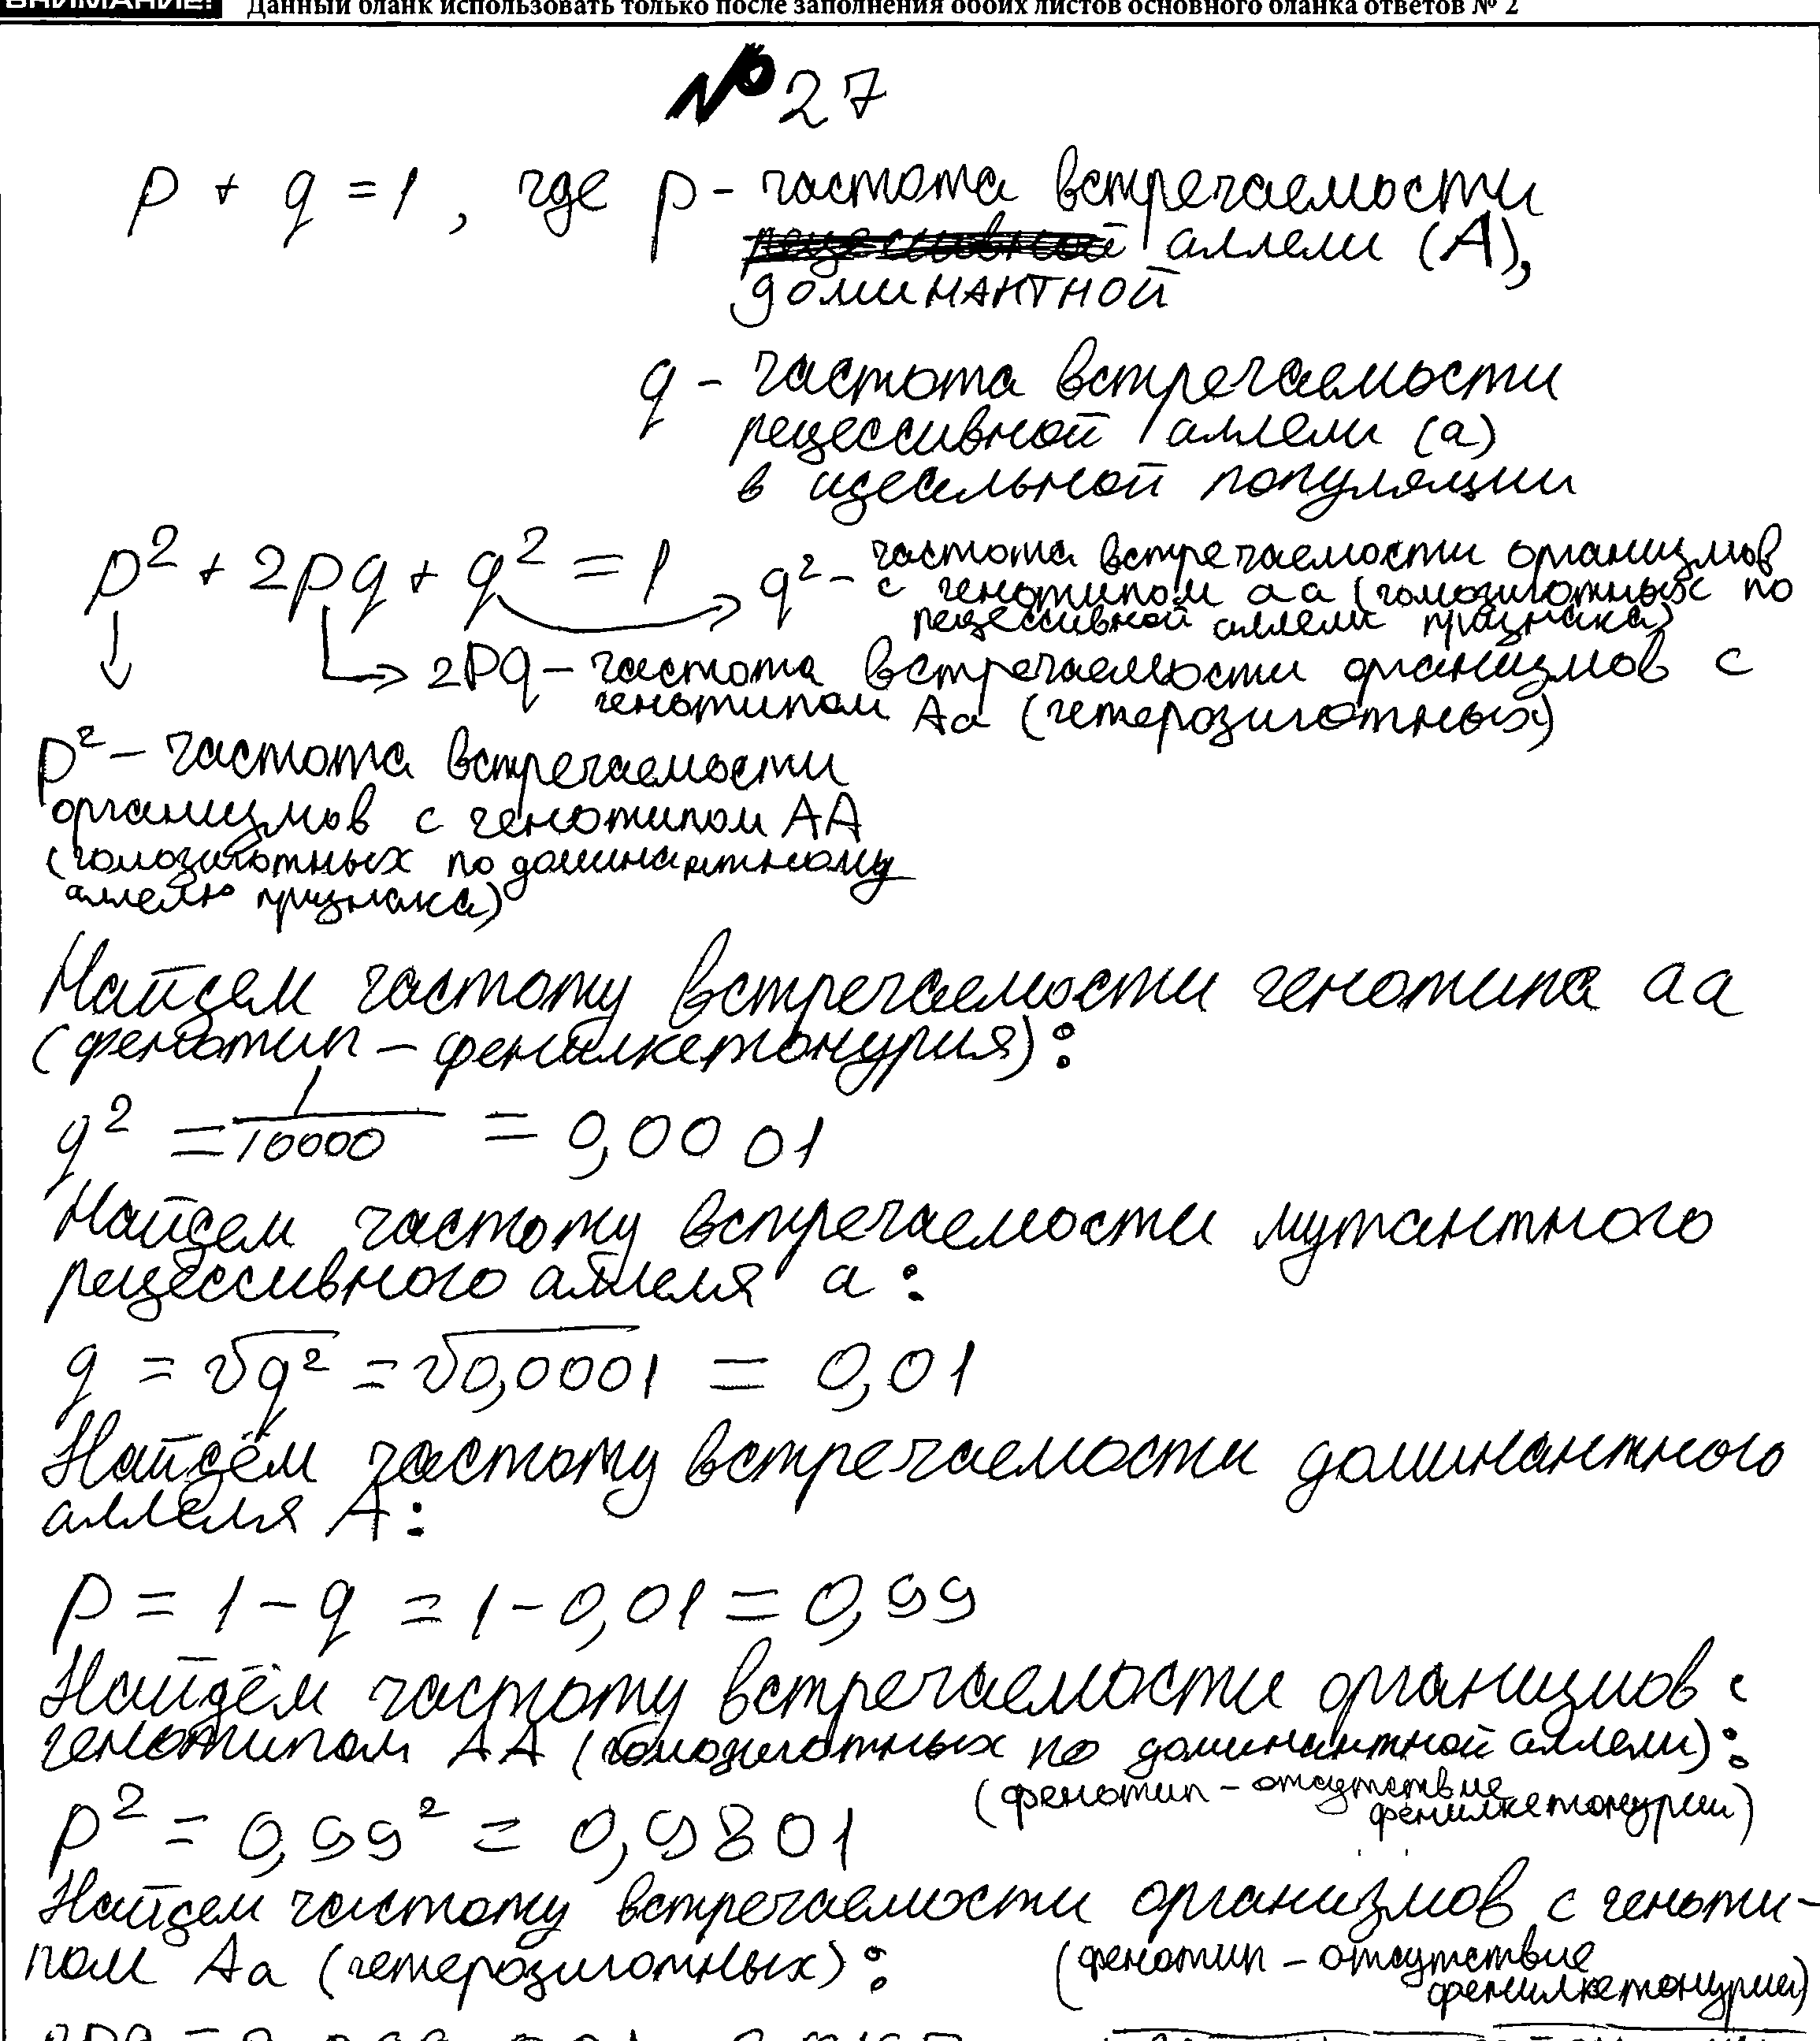 ВНИМАНИЕ! Данный бланк использовать только после заполнения обоих листов основного бланка ответов № 2
№ 27
p + q = 1, где p - частота встречаемости
рецессивной аллели (A),
доминантной
q - частота встречаемости
рецессивной аллели (a)
в идеальной популяции
p² + 2pq + q² = 1
q² - частота встречаемости организмов
с генотипом aa (гомозиготных по
рецессивной аллели признака)
2pq - частота встречаемости организмов с
генотипом Aa (гетерозиготных)
p² - частота встречаемости
организмов с генотипом AA
(гомозиготных по доминантному
аллелю признака)
Найдем частоту встречаемости генотипа aa
(фенотип - фенилкетонурия):
q² = 1/10000 = 0,0001
Найдем частоту встречаемости мутантного
рецессивного аллеля a:
q = √q² = √0,0001 = 0,01
Найдём частоту встречаемости доминантного
аллеля A:
p = 1 - q = 1 - 0,01 = 0,99
Найдём частоту встречаемости организмов с
генотипом AA (гомозиготных по доминантной аллели):
(фенотип - отсутствие
фенилкетонурии)
p² = 0,99² = 0,9801
Найдем частоту встречаемости организмов с геноти-
пом Aa (гетерозиготных):
(фенотип - отсутствие
фенилкетонурии)